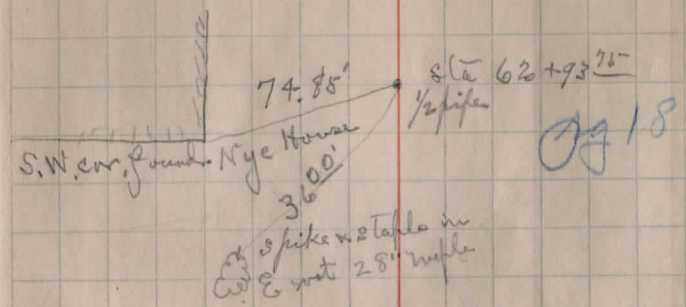 74.85'
sta 62 +93 75
1/2 pipe
Pg 18
S.W. cor. found. Nye House
36 00'
spike & staple in
E root 28" maple